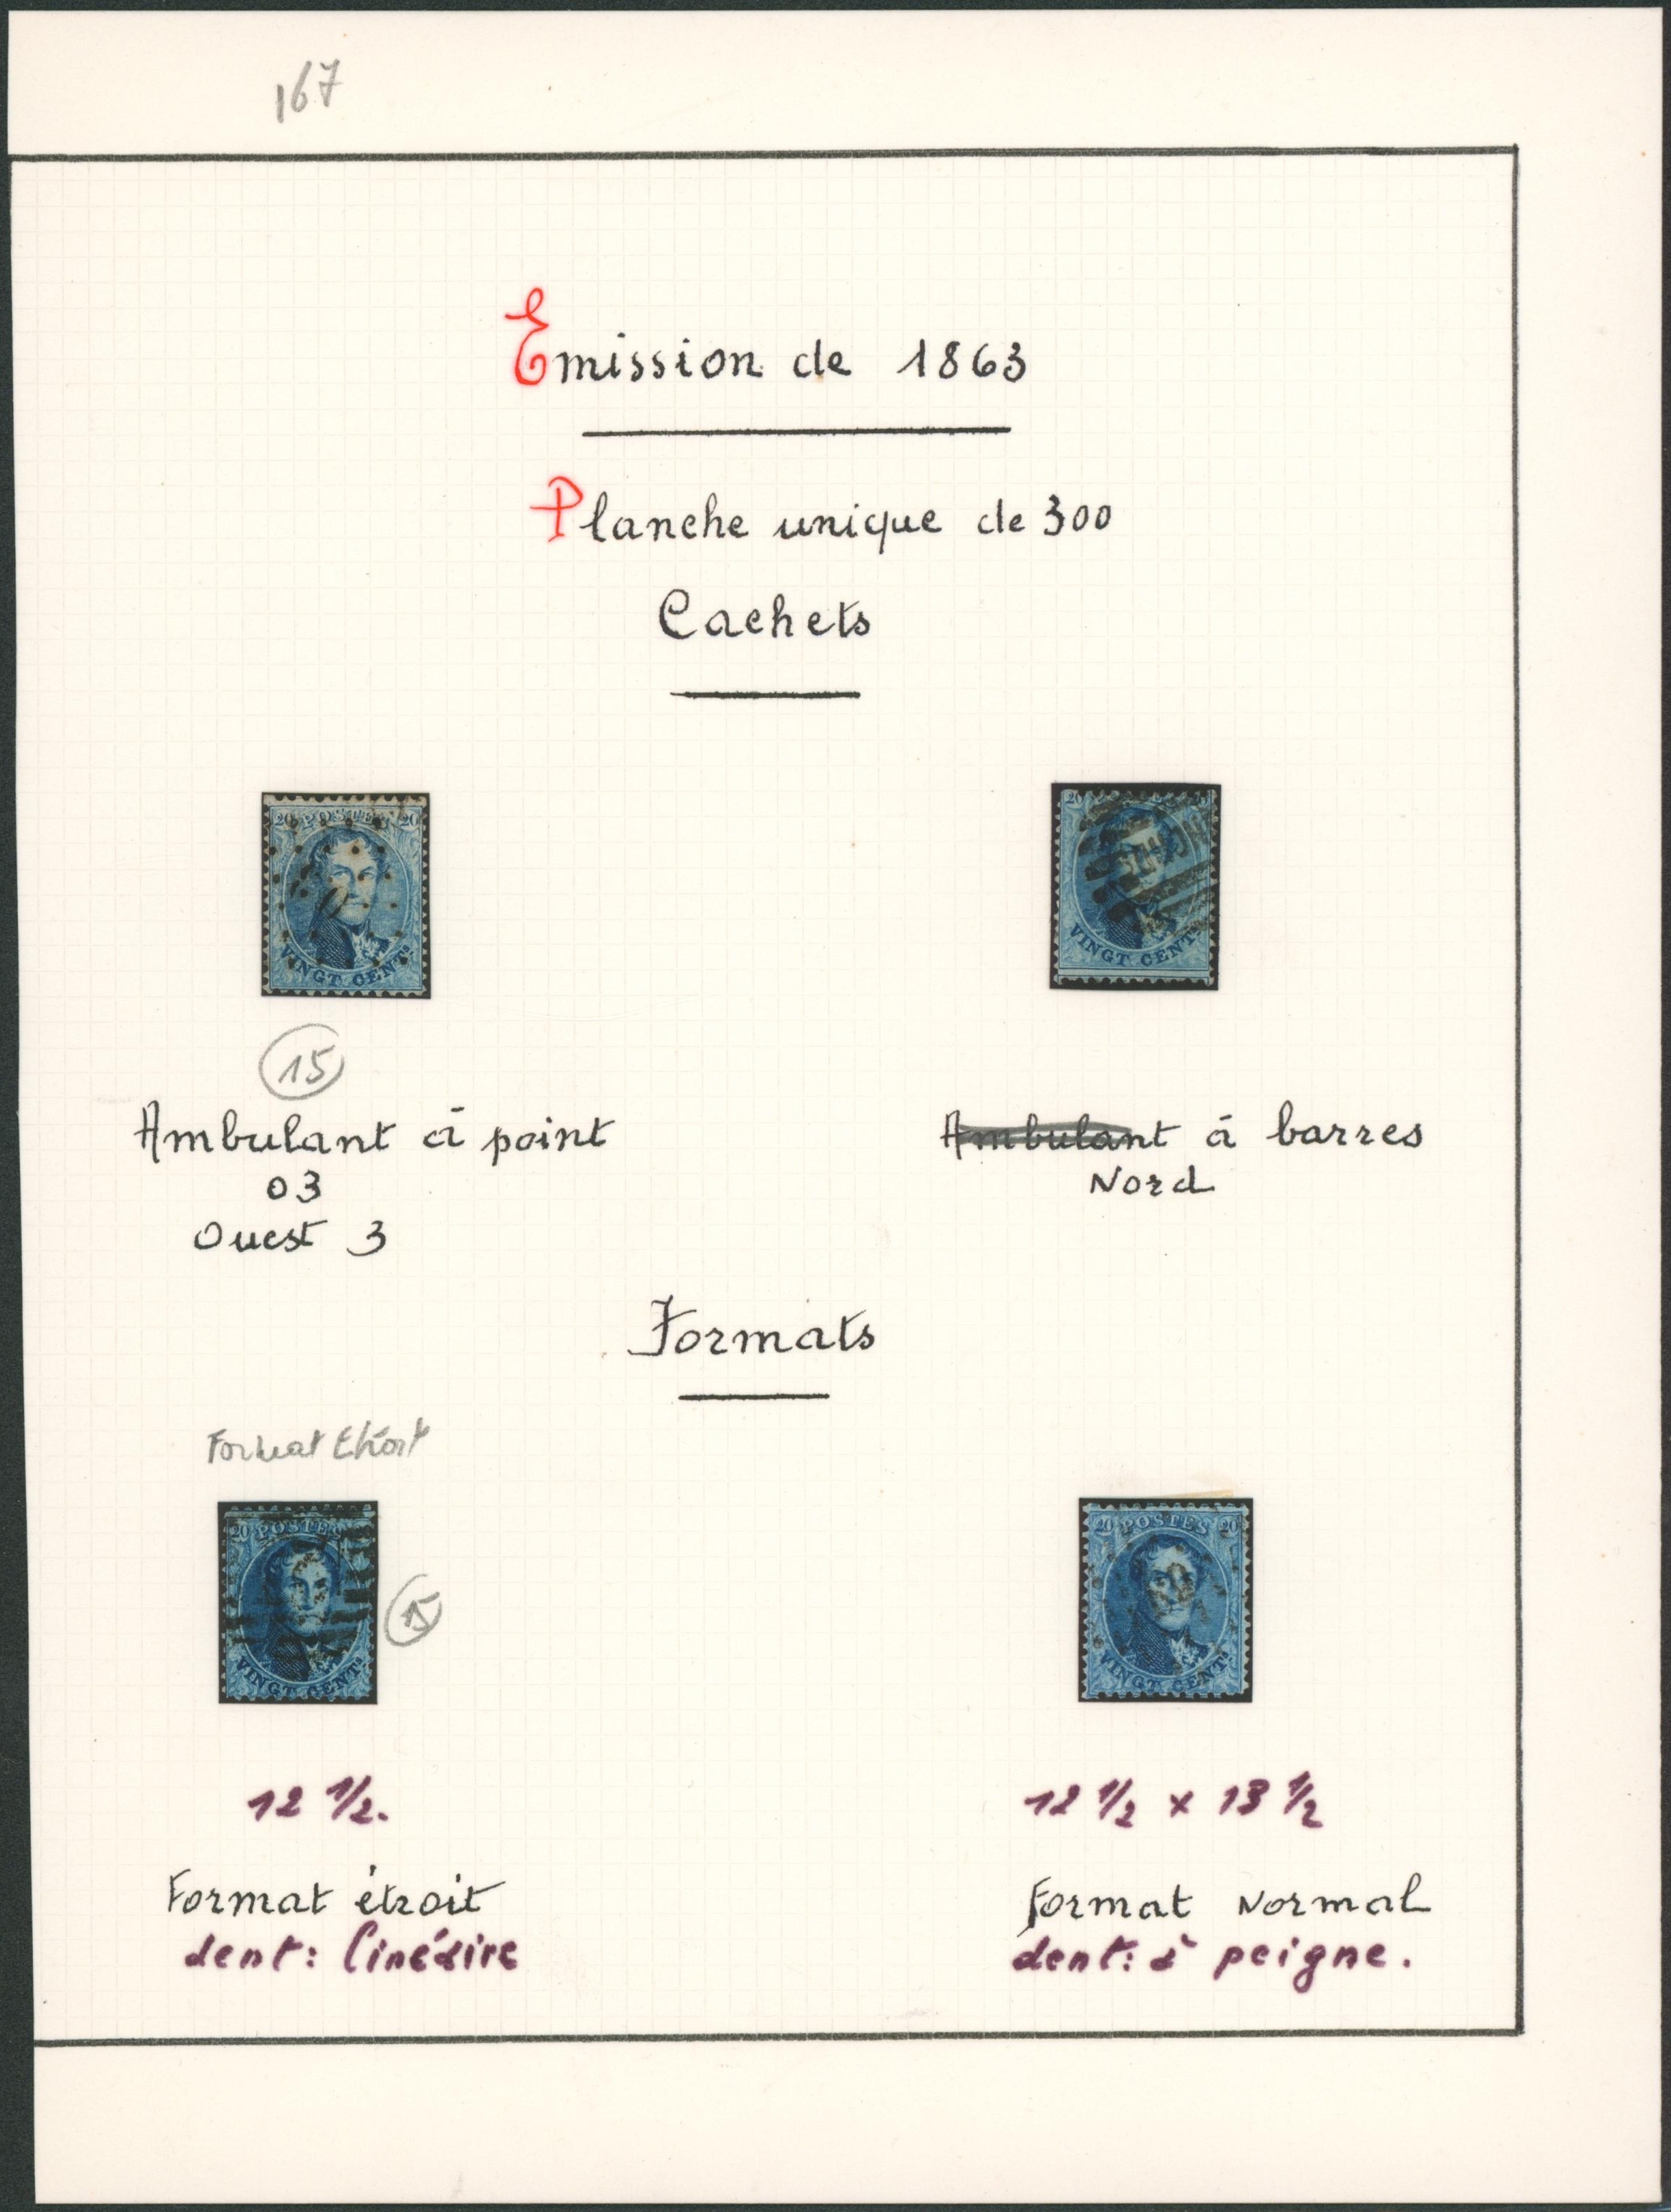 167
Emission de 1863
Planche unique de 300
Cachets
20 POSTES 20
VINGT CENTS
20
VINGT CENTS
15
Ambulant à point
03
Ouest 3
Ambulant à barres
Nord
Formats
Format Etroit
20 POSTES
VINGT CENTS
15
20 POSTES 20
VINGT CENTS
12 1/2.
Format étroit
dent: linéaire
12 1/2 x 13 1/2
Format Normal
dent: à peigne.